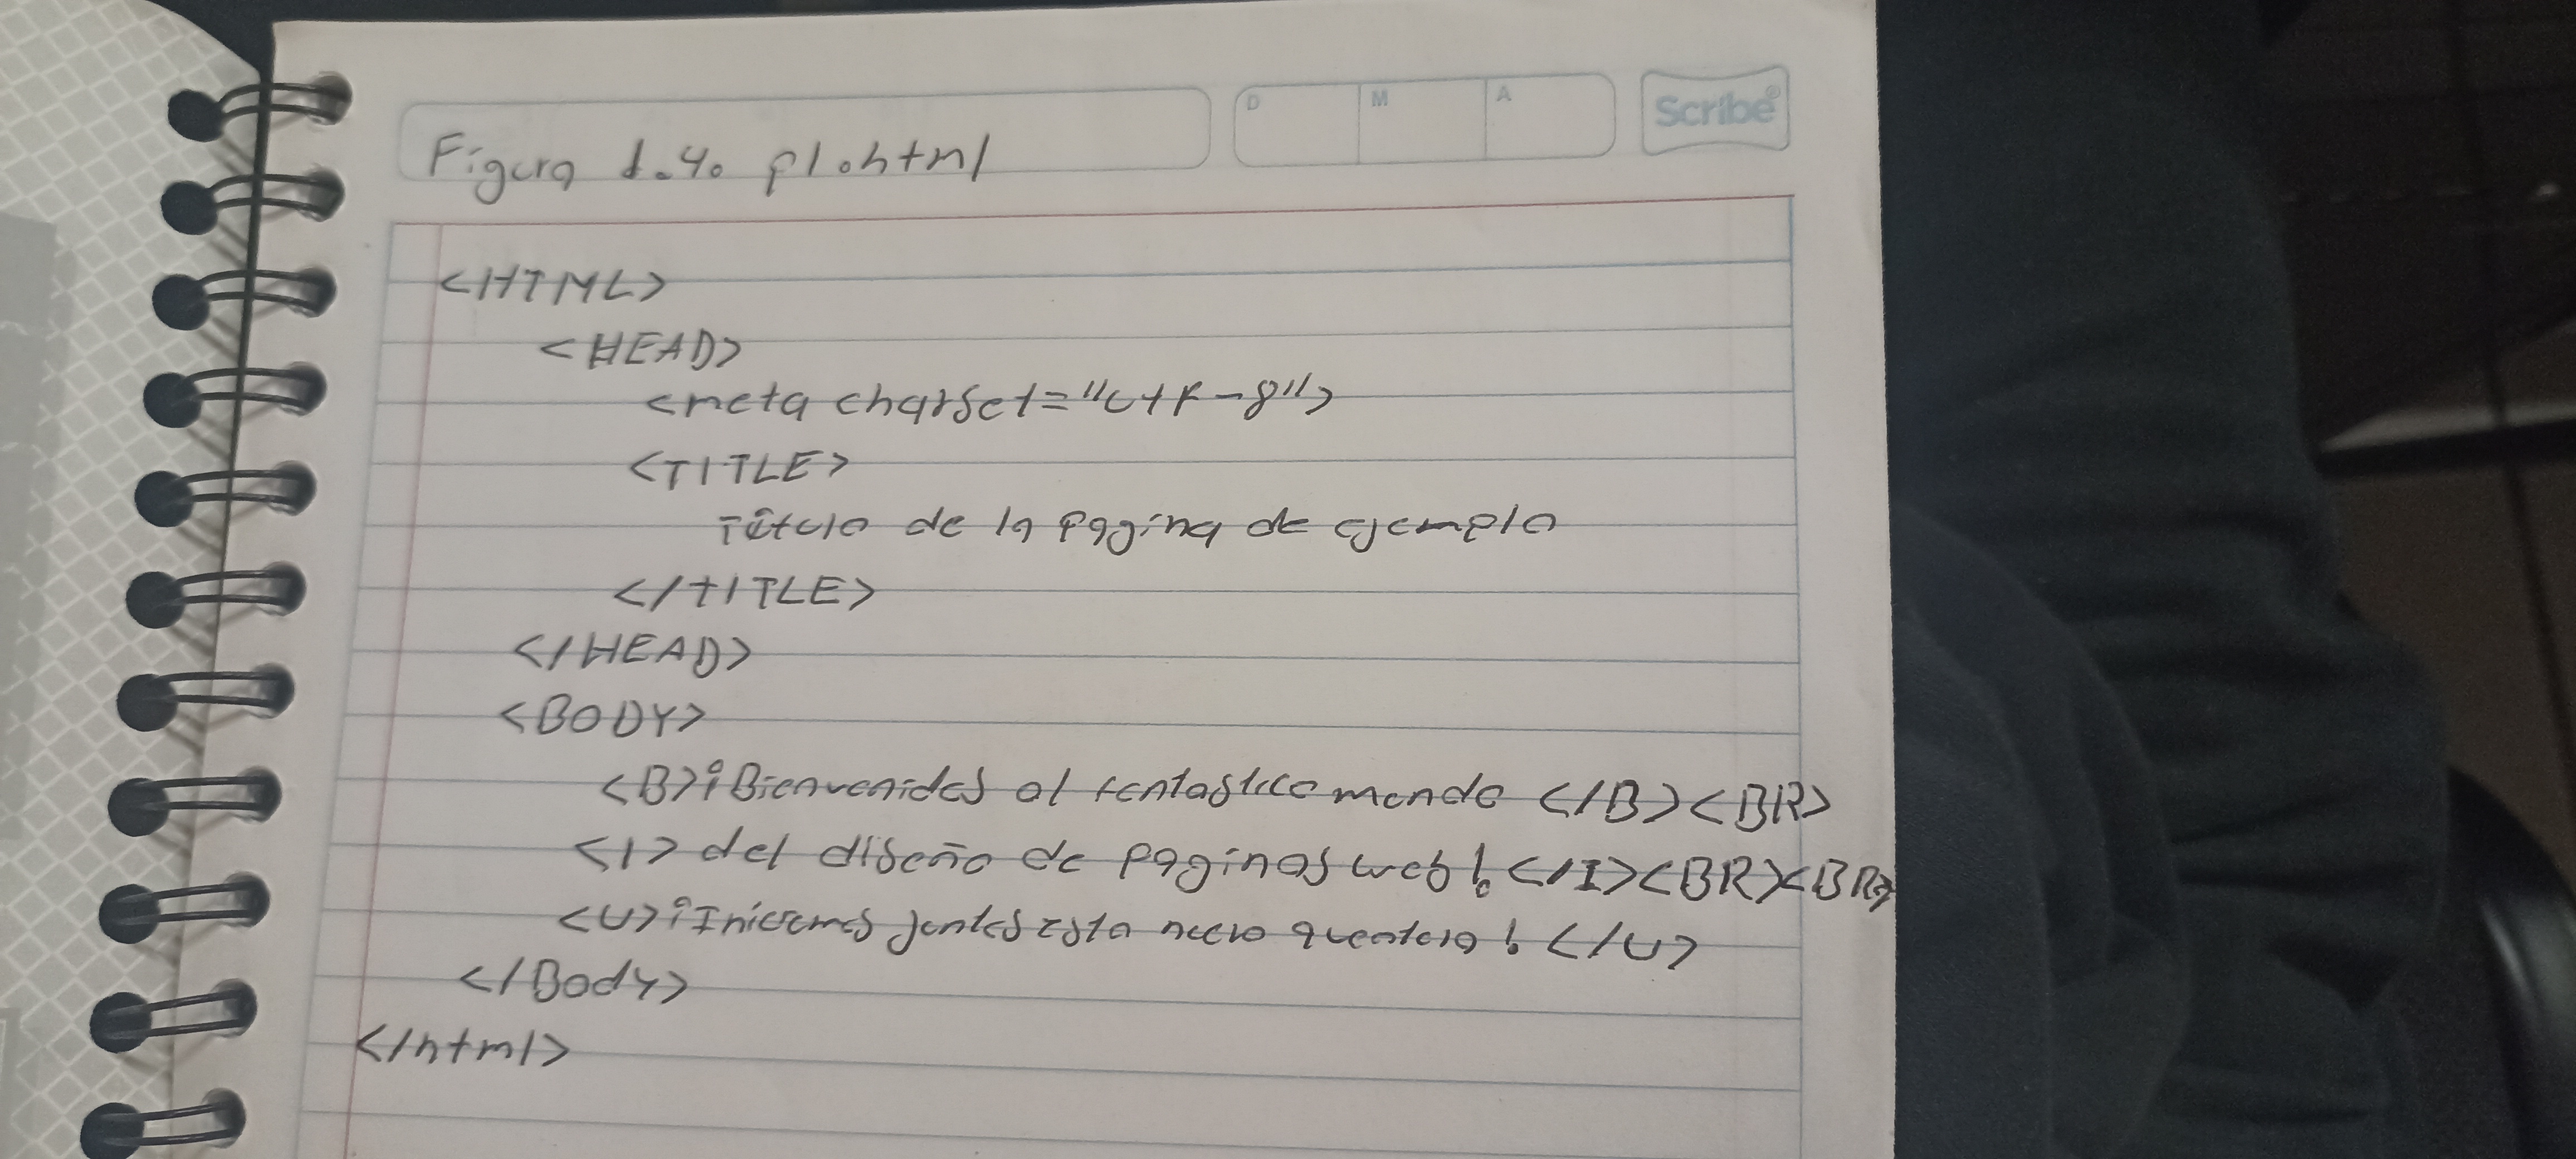 D M A
Scribe
Figura 1.4. p1.html
<HTML>
<HEAD>
<meta charset="utf-8">
<TITLE>
Título de la Pagina de ejemplo
</TITLE>
</HEAD>
<BODY>
<B>¡Bienvenidos al fantastico mundo </B><BR>
<I> del diseño de paginas web!</I><BR><BR>
<U>¡Iniciemos juntos esta nueva aventura!</U>
</Body>
</html>